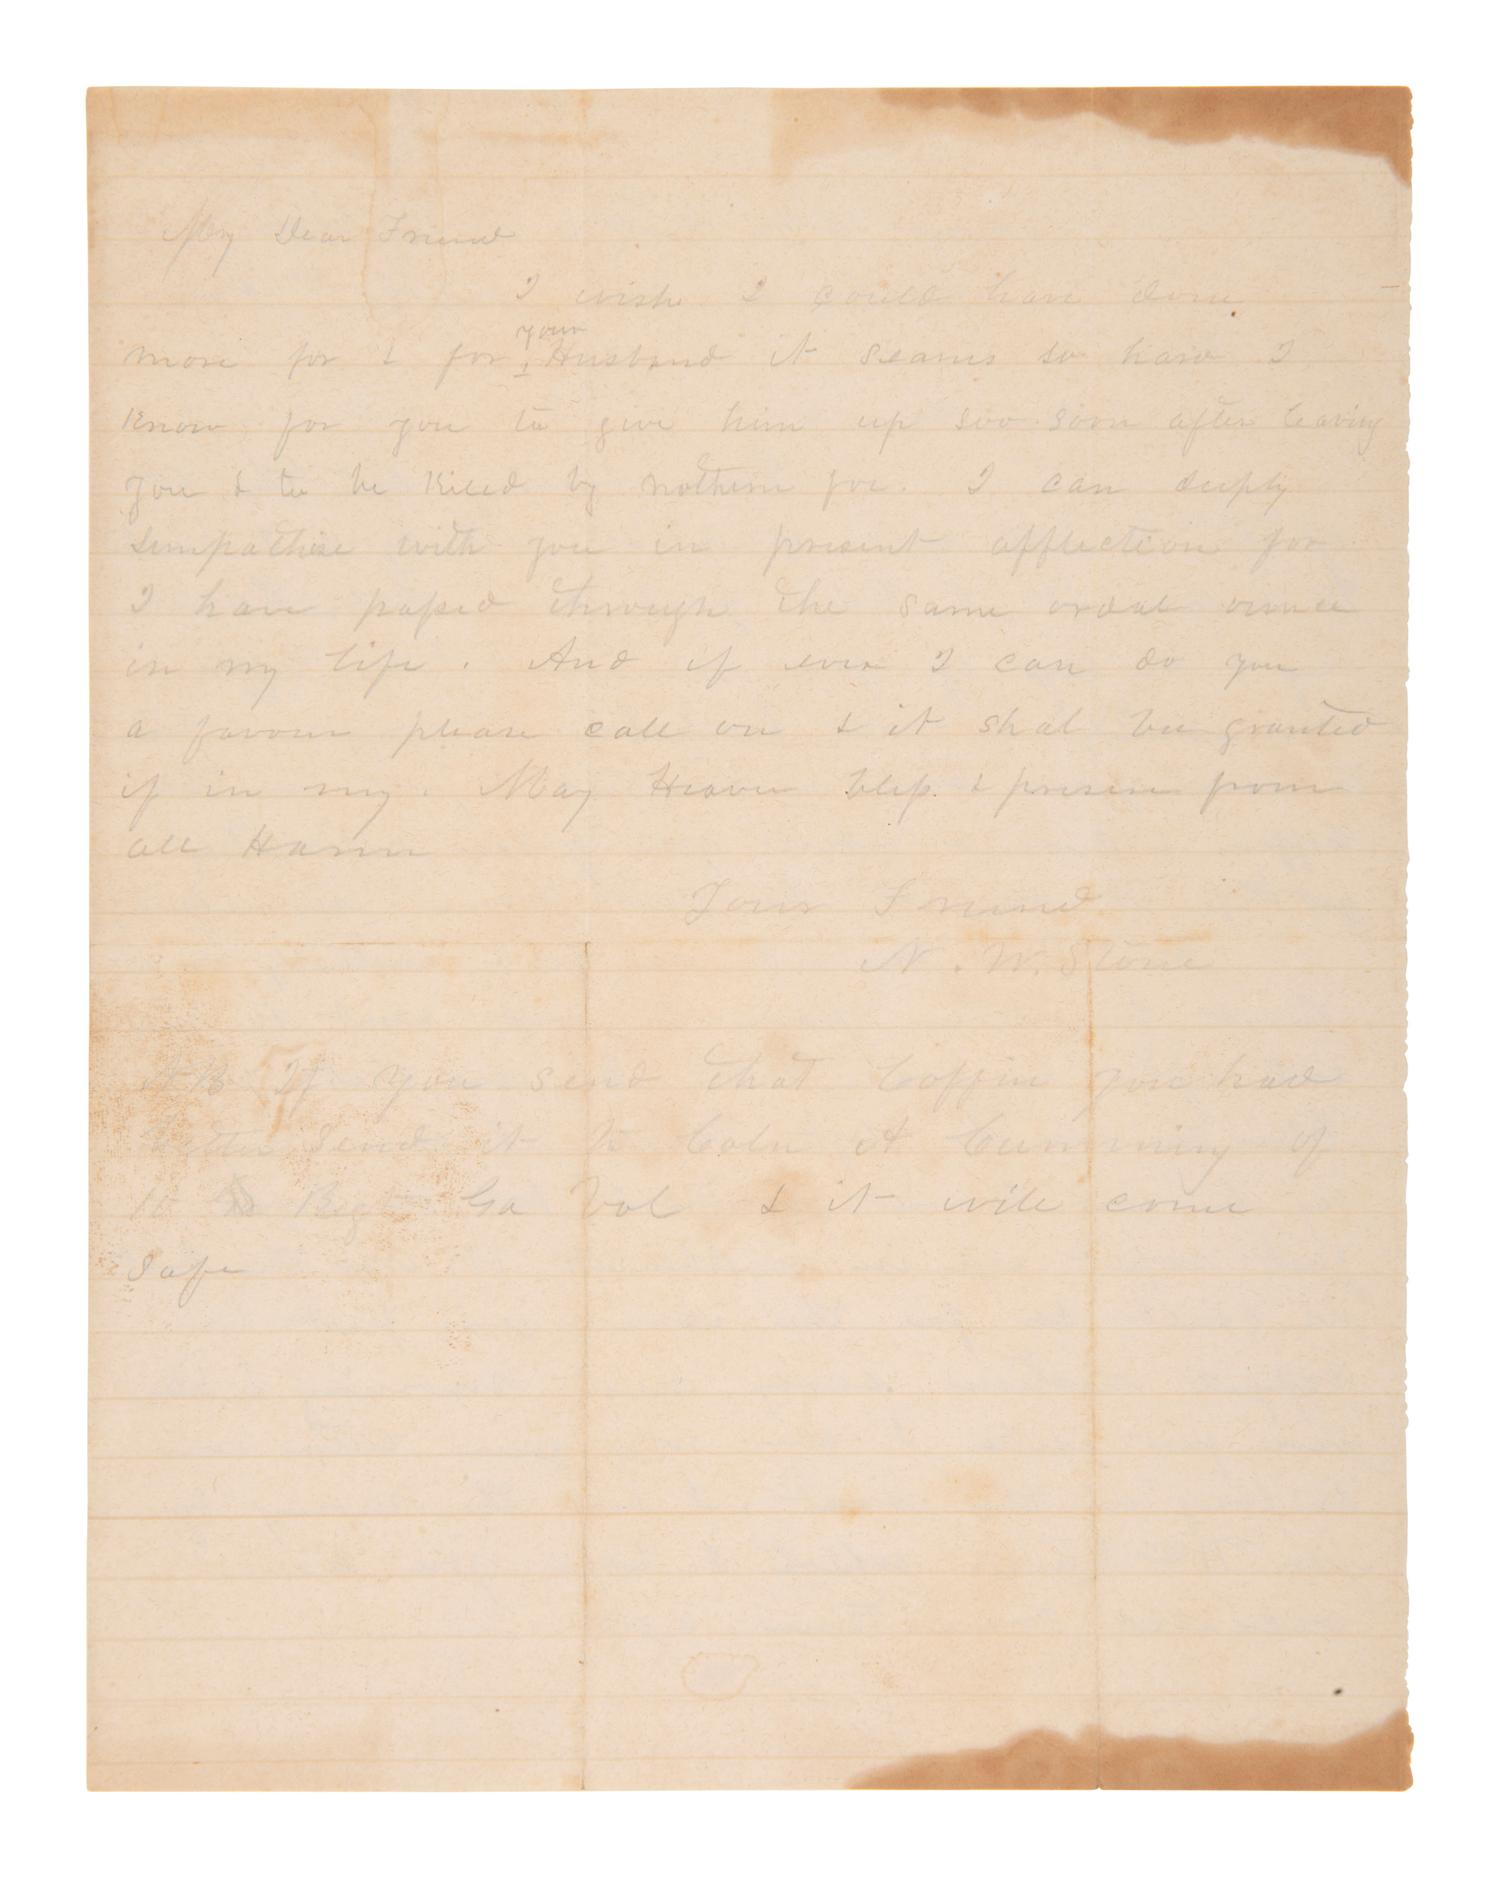 My Dear Friend
I wish I could have done
more for & for your Husband it seams so hard I
Know for you to give him up soo soon after leaving
you & to be Killed by nothin for. I can deeply
simpathise with you in present afflection for
I have passed through the same ordal
in my life. And if ever I can do you
a favour please call on & it shal be granted
if in my. May Heaven bless & preserve from
all Harm
Your Friend
N. W. Stone
NB If you send that Coffin you had
better send it to Coln A Cumming of
10 Regt Ga Vol & it will come
Safe